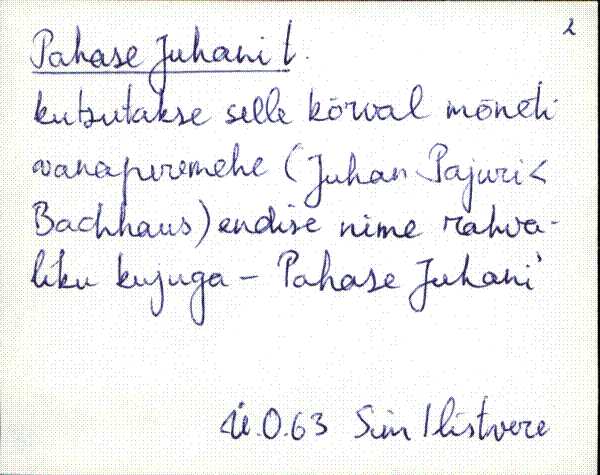 2
Pahase Juhani t.
kutsutakse selle kõrval mõneti
vanaperemehe (Juhan Pajuri <
Bachhaus) endise nime rahva-
liku kujuga – Pahase Juhani
Ü.O.63 Sim Ilistvere